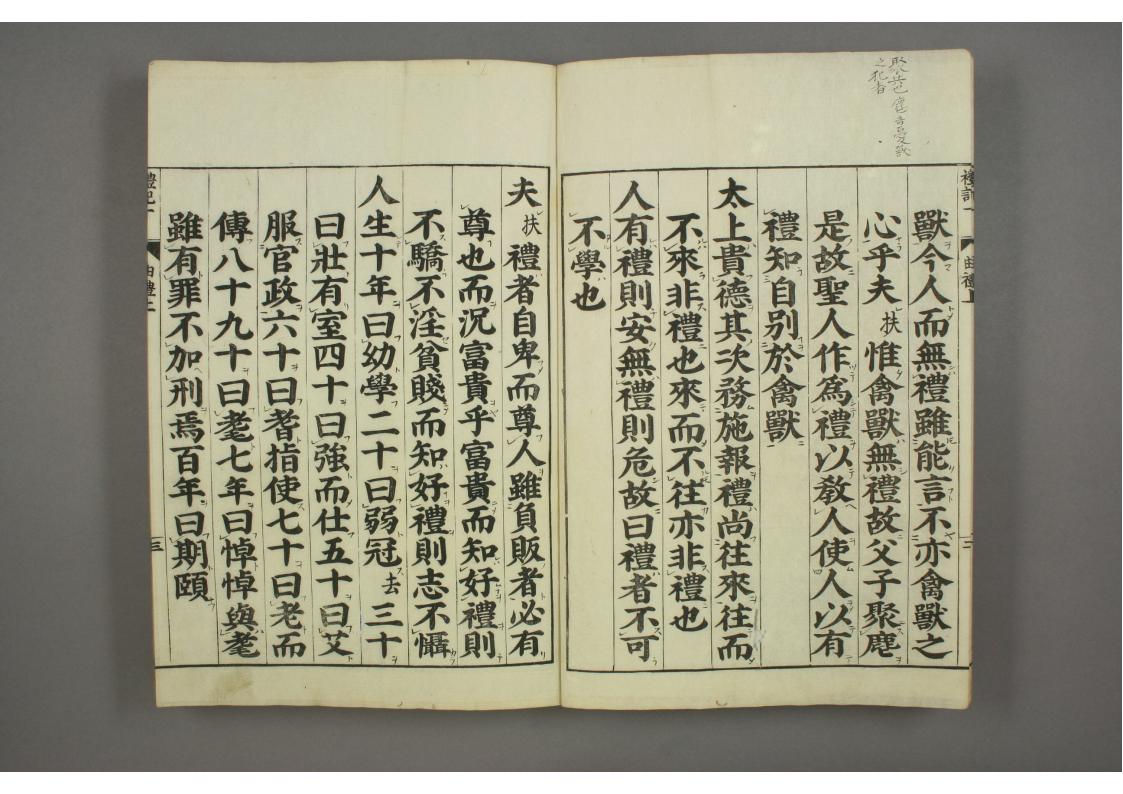 禮記一
曲禮上
獸今人而無禮雖能言不亦禽獸之
心乎夫扶惟禽獸無禮故父子聚麀
是故聖人作爲禮以敎人使人以有
禮知自别於禽獸
太上貴德其次務施報禮尚往來往而
不來非禮也來而不往亦非禮也
人有禮則安無禮則危故曰禮者不可
不學也
夫扶禮者自卑而尊人雖負販者必有
尊也而況富貴乎富貴而知好禮則
不驕不淫貧賤而知好禮則志不懾
人生十年曰幼學二十曰弱冠去三十
曰壯有室四十曰強而仕五十曰艾
服官政六十曰耆指使七十曰老而
傳八十九十曰耄七年曰悼悼與耄
雖有罪不加刑焉百年曰期頤
禮記一
曲禮上
三